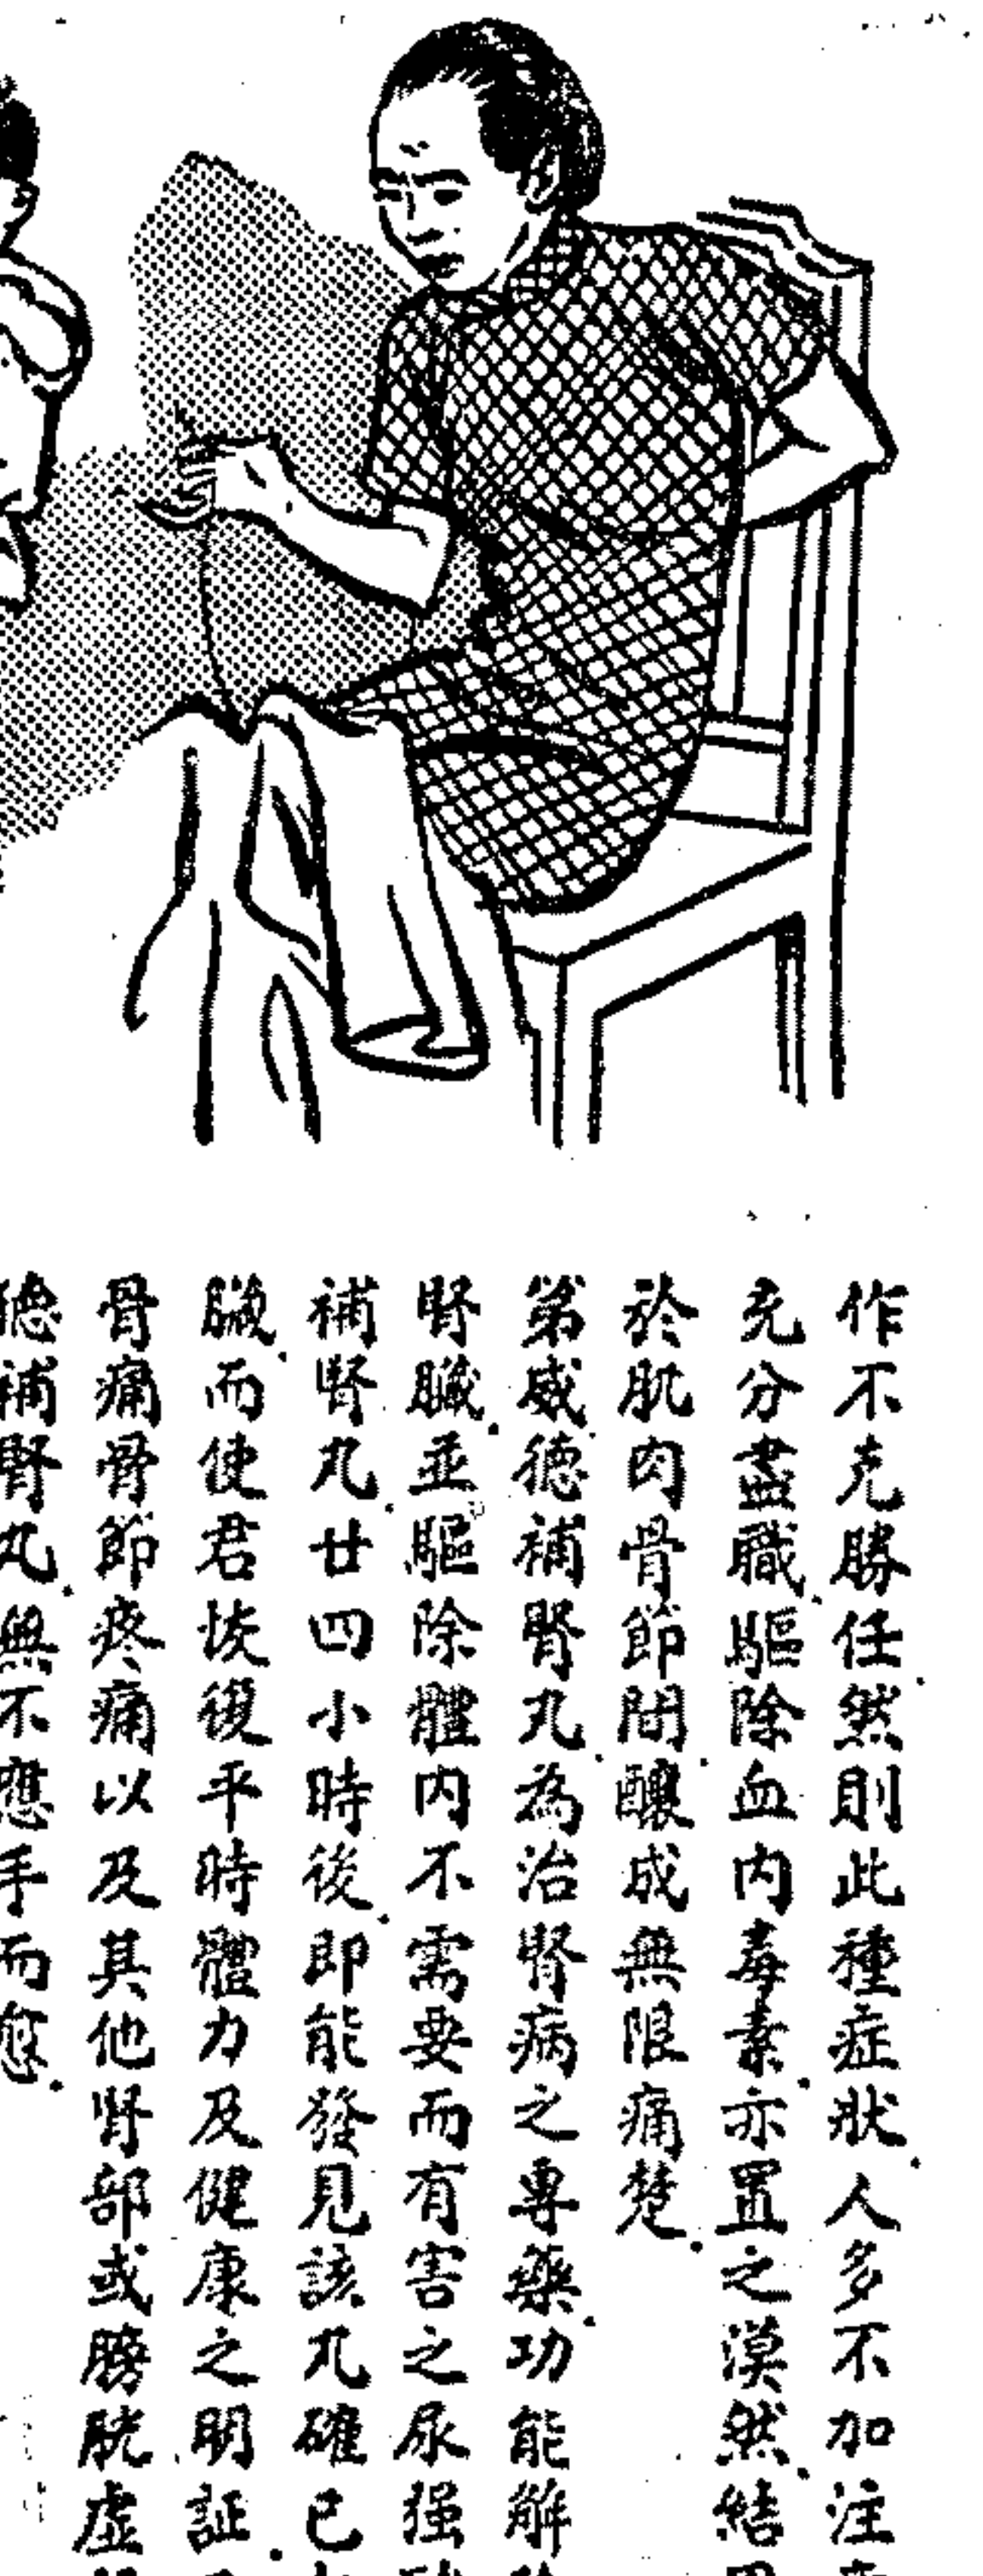 作不克勝任然則此種症狀．人多不加注
充分盡職．驅除血內毒素．亦置之漠然．結
於肌肉骨節間．釀成無限痛楚．
第威德補腎丸．為治腎病之專藥．功能解
腎臟．並驅除體內不需要而有害之尿强
補腎丸．廿四小時後．即能發見該丸確已
臟．而使君恢復平時體力及健康之明証．
骨痛骨節疼痛以及其他腎部或膀胱虛
德補腎丸．無不應手而愈．